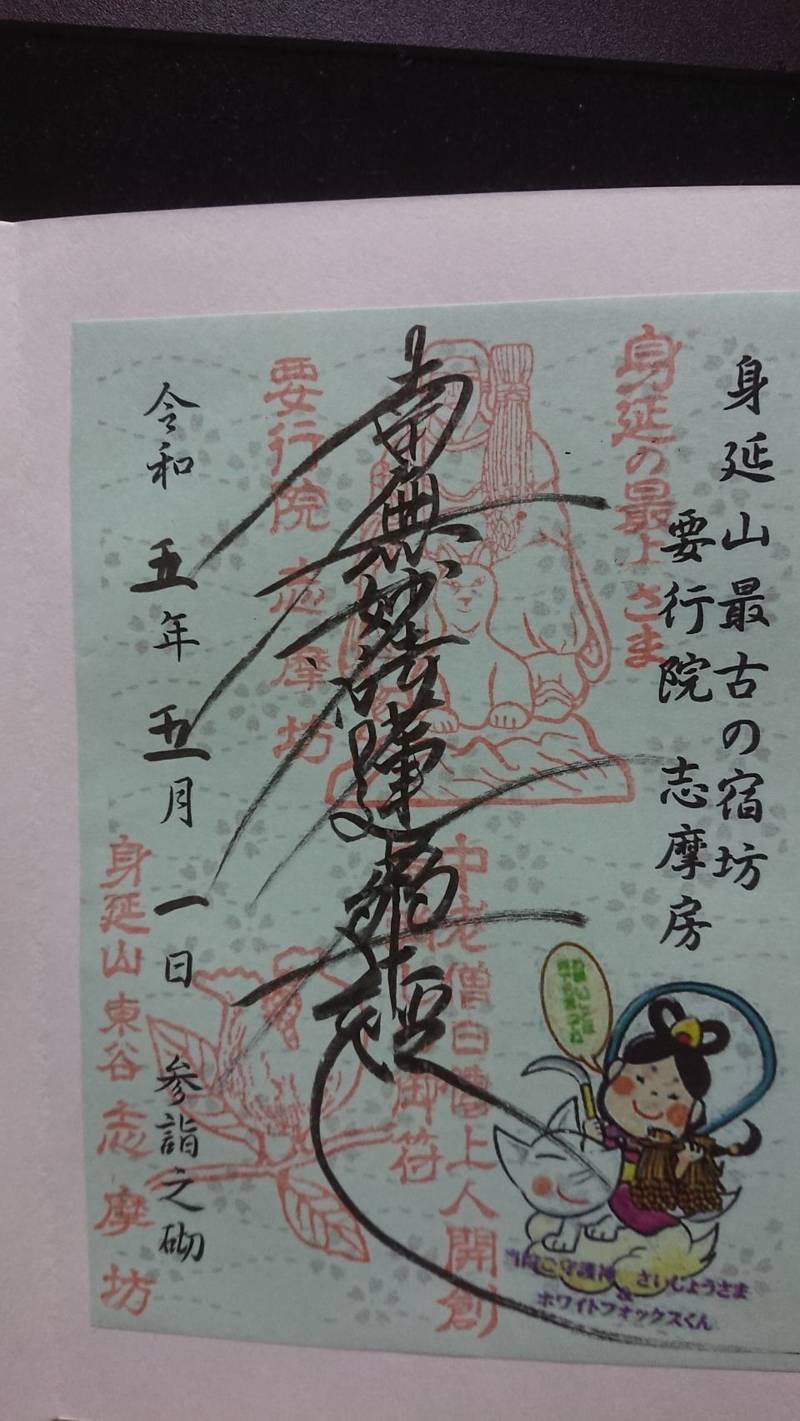 身延山最古の宿坊
要行院 志摩房
身延の最上さま
南無妙法蓮華経
要行院 志摩坊
中老僧日傳上人開創
御符
令和 五年 五月 一日 参詣之砌
身延山東谷志摩坊
当院ご守護神 さいじょうさま
&
ホワイトフォックスくん